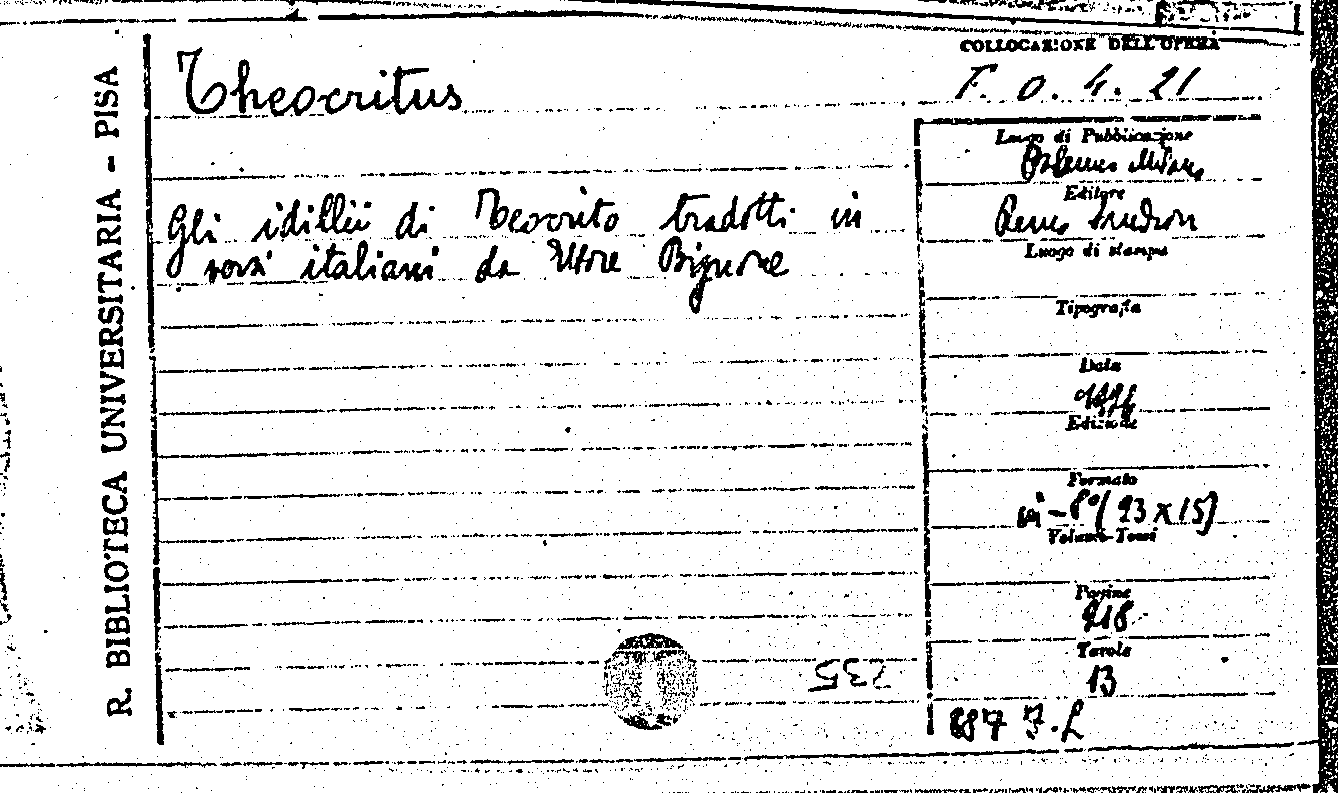 R. BIBLIOTECA UNIVERSITARIA - PISA
Theocritus
Gli idillii di Teocrito tradotti in
versi italiani da Ettore Bignone
COLLOCAZIONE DELL'OPERA
F. O. 4. 21
Luogo di Pubblicazione
Palermo Milano
Editore
Remo Sandron
Luogo di stampa
Tipografia
Data
Edizione
Formato
in-8º (23 x 15)
Volumi-Tomi
Pagine
218
Tavole
13
235